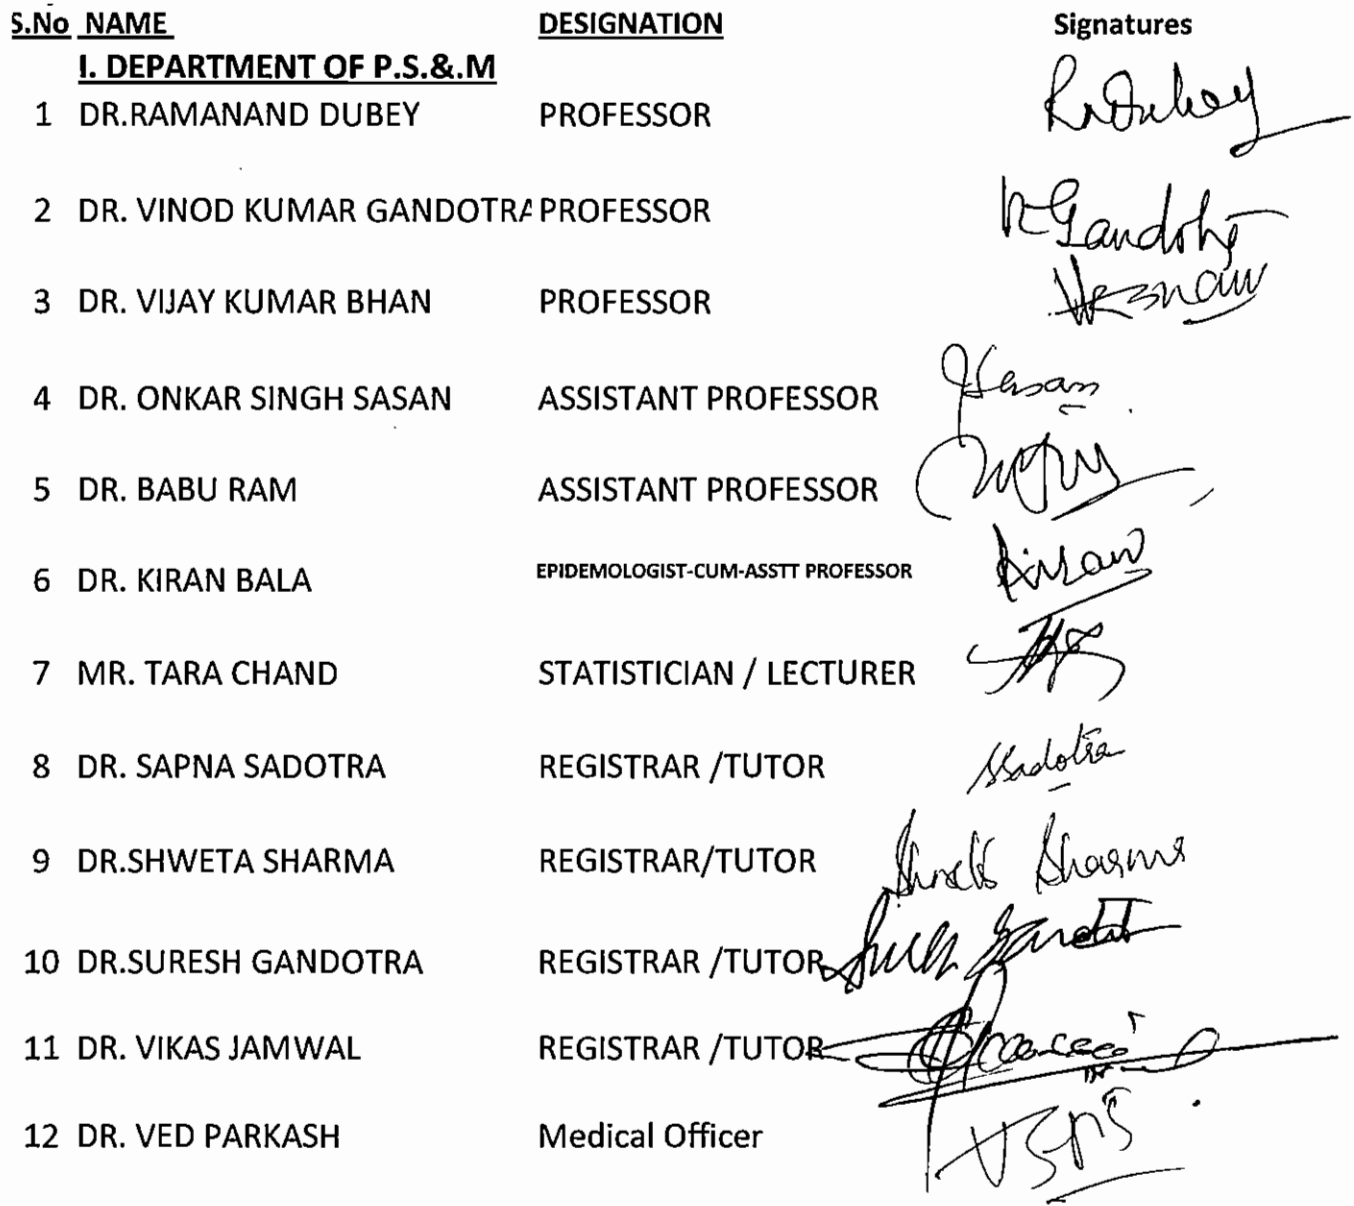 S.No NAME DESIGNATION Signatures
I. DEPARTMENT OF P.S.&.M
1 DR.RAMANAND DUBEY PROFESSOR
2 DR. VINOD KUMAR GANDOTRA PROFESSOR
3 DR. VIJAY KUMAR BHAN PROFESSOR
4 DR. ONKAR SINGH SASAN ASSISTANT PROFESSOR
5 DR. BABU RAM ASSISTANT PROFESSOR
6 DR. KIRAN BALA EPIDEMOLOGIST-CUM-ASSTT PROFESSOR
7 MR. TARA CHAND STATISTICIAN / LECTURER
8 DR. SAPNA SADOTRA REGISTRAR /TUTOR SSadotra
9 DR.SHWETA SHARMA REGISTRAR/TUTOR
10 DR.SURESH GANDOTRA REGISTRAR /TUTOR
11 DR. VIKAS JAMWAL REGISTRAR /TUTOR
12 DR. VED PARKASH Medical Officer